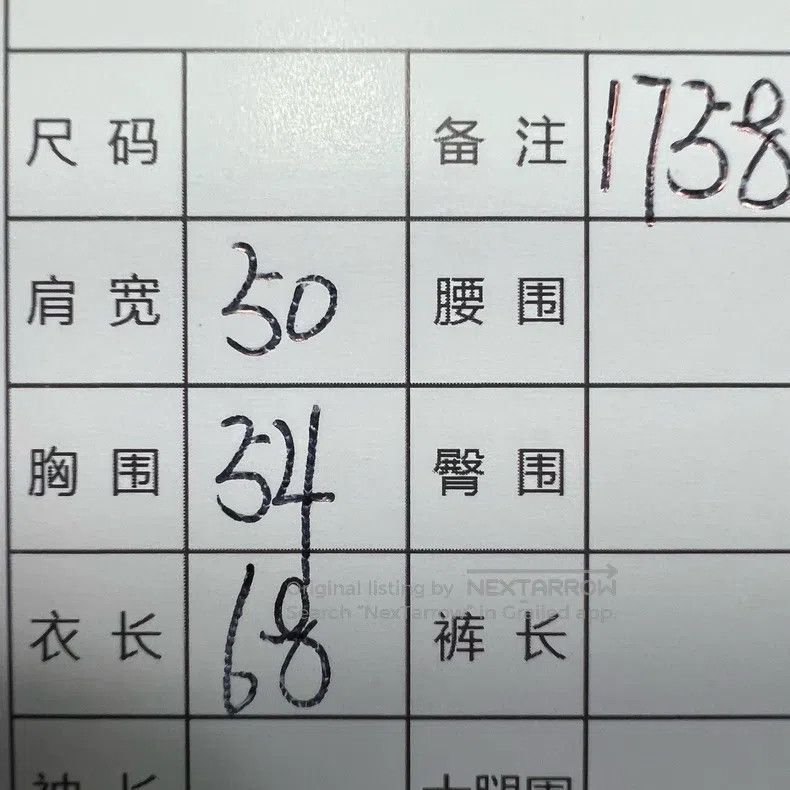 尺码 备注 1758
肩宽 50 腰围
胸围 54 臀围
Original listing by NEXTARROW
Search "NexTarrow" in Grailed app.
衣长 68 裤长
袖长 大腿围